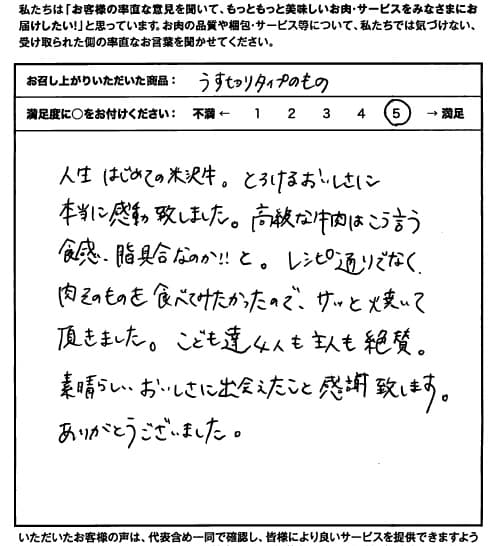 私たちは「お客様の率直な意見を聞いて、もっともっと美味しいお肉・サービスをみなさまにお
届けしたい!」と思っています。お肉の品質や梱包・サービス等について、私たちでは気づけない、
受け取られた側の率直なお言葉を聞かせてください。
お召し上がりいただいた商品： うす切りタイプのもの
満足度に○をお付けください： 不満 ← 1 2 3 4 5 → 満足
人生 はじめての米沢牛。とろけるおいしさに
本当に感動致しました。高級な牛肉はこう言う
食感、脂具合なのか!!と。レシピ通りでなく
肉そのものを食べてみたかったので、サッと焼いて
頂きました。こども達4人も主人も絶賛。
素晴らしいおいしさに出会えたこと感謝致します。
ありがとうございました。
いただいたお客様の声は、代表含め一同で確認し、皆様により良いサービスを提供できますよう